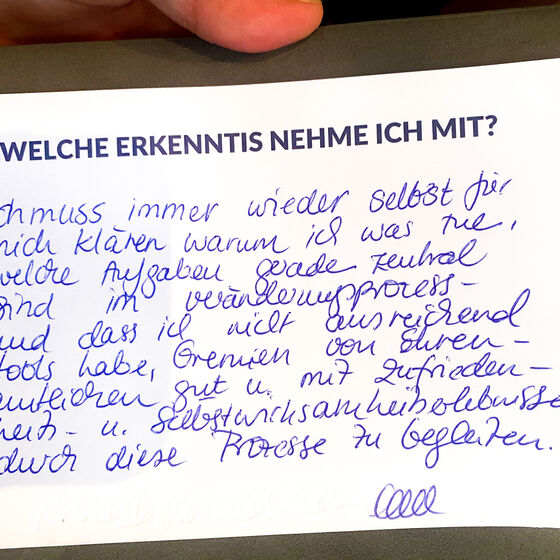 WELCHE ERKENNTIS NEHME ICH MIT?
ch muss immer wieder selbst für
mich klären warum ich was tue,
welche Aufgaben gerade zentral
sind im veränderungsprozess-
und dass ich nicht ausreichend
tools habe, Gremien von Ehren-
amtlichen gut u. mit Zufrieden-
heits- u. Selbstwirksamkeitserlebnisse
durch diese Prozesse zu begleiten.